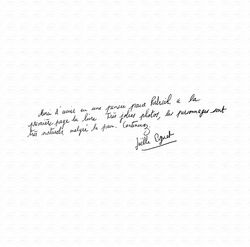 Merci d'avoir eu une pensée pour Patrick à la
première page du livre. Très jolies photos, les personnages sont
très naturels malgré le pain. Continuez
Joëlle